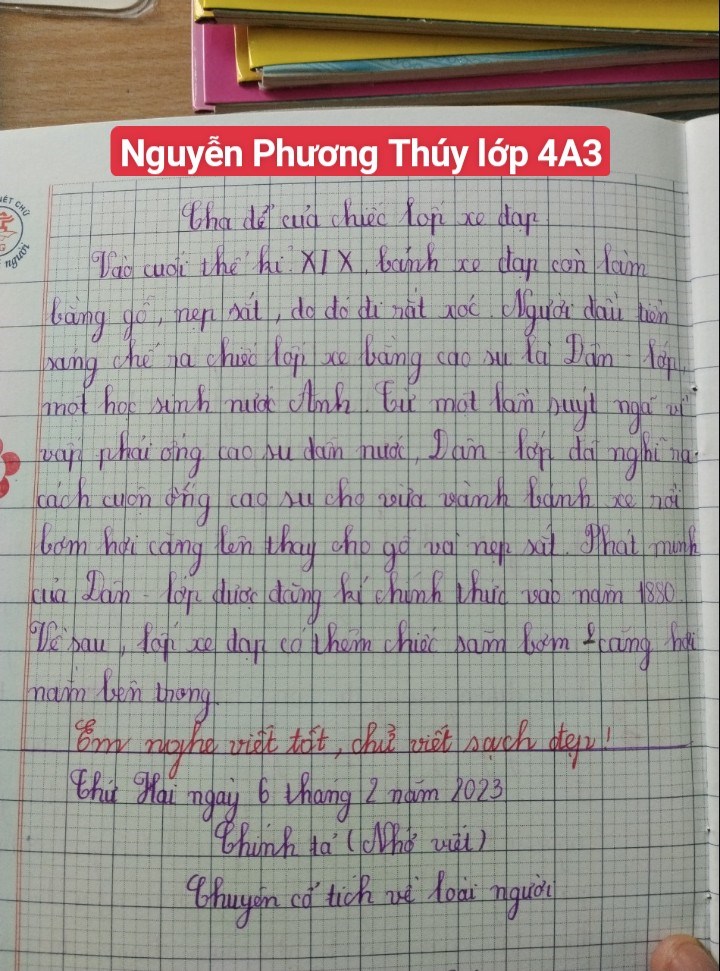 Nguyễn Phương Thúy lớp 4A3
VIẾT CHỮ
người
Cha đẻ của chiếc lốp xe đạp
Vào cuối thế kỉ XIX, bánh xe đạp còn làm
bằng gỗ, nẹp sắt, do đó đi rất xóc. Người đầu tiên
sáng chế ra chiếc lốp xe bằng cao su là Dân - lớp,
một học sinh nước Anh. Từ một lần suýt ngã vì
vấp phải ống cao su dẫn nước, Dân - lớp đã nghĩ ra
cách cuộn ống cao su cho vừa vành bánh xe rồi
bơm hơi căng lên thay cho gỗ và nẹp sắt. Phát minh
của Dân - lớp được đăng kí chính thức vào năm 1880.
Về sau, lốp xe đạp có thêm chiếc săm bơm căng hơi
nằm bên trong.
Em nghe viết tốt, chữ viết sạch đẹp!
Thứ Hai ngày 6 tháng 2 năm 2023
Chính tả (Nhớ viết)
Chuyện cổ tích về loài người